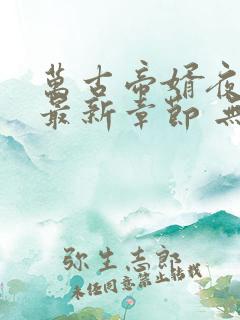 萬古帝婿夜
最新章節 無
弥生志郎
未经同意禁止转载